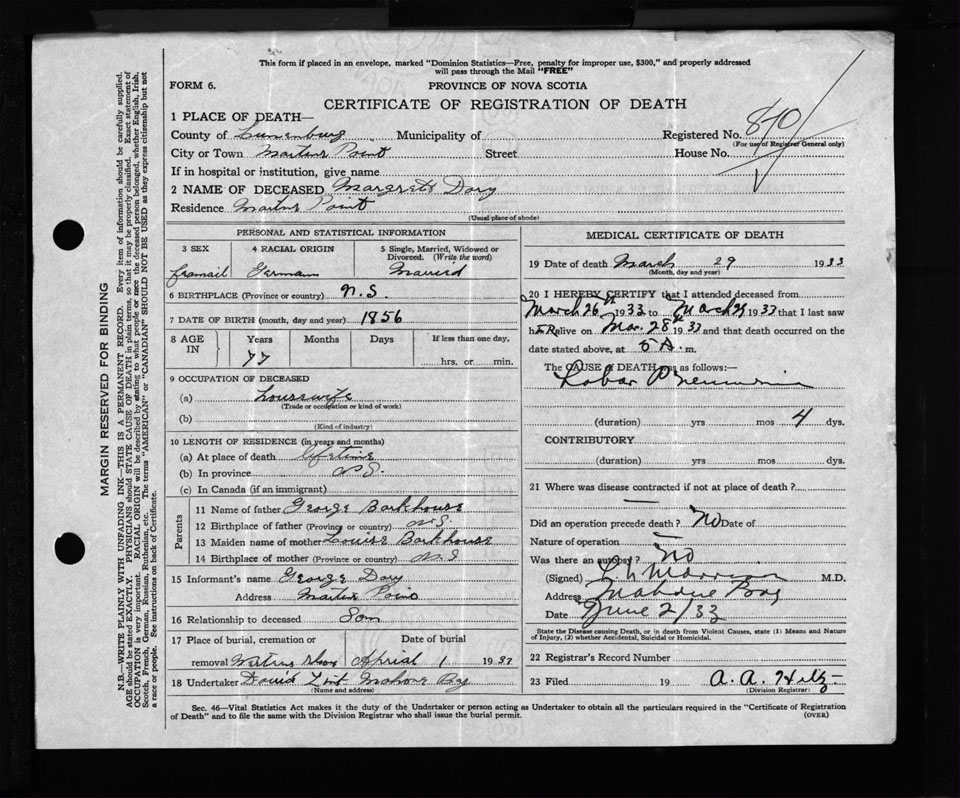 This form if placed in an envelope, marked "Dominion Statistics—Free, penalty for improper use, $300," and properly addressed
will pass through the Mail "FREE"
FORM 6.
PROVINCE OF NOVA SCOTIA
CERTIFICATE OF REGISTRATION OF DEATH
1 PLACE OF DEATH—
County of Lunenburg Municipality of Registered No. 870
(For use of Registrar General only)
City or Town Martins Point Street House No.
If in hospital or institution, give name
2 NAME OF DECEASED Margrett Dory
Residence Martins Point
(Usual place of abode)
PERSONAL AND STATISTICAL INFORMATION
3 SEX 4 RACIAL ORIGIN 5 Single, Married, Widowed or
Divorced. (Write the word)
framail German Maurerd
6 BIRTHPLACE (Province or country) N.S.
7 DATE OF BIRTH (month, day and year) 1856
8 AGE IN Years Months Days If less than one day,
77 hrs. or min.
9 OCCUPATION OF DECEASED
(a) Housswife
(Trade or occupation or kind of work)
(b)
(Kind of industry)
10 LENGTH OF RESIDENCE (in years and months)
(a) At place of death lifetime
(b) In province N.S.
(c) In Canada (if an immigrant)
Parents
11 Name of father George Barkhouse
12 Birthplace of father (Province or country) N.S.
13 Maiden name of mother Louise Barkhouse
14 Birthplace of mother (Province or country) N.S
15 Informant's name George Dory
Address Martins Point
16 Relationship to deceased Son
17 Place of burial, cremation or Date of burial
removal Western Shore Aprial 1 1937
18 Undertaker David Lent Mahone Bay
(Name and address)
MEDICAL CERTIFICATE OF DEATH
19 Date of death March 29 1933
(Month, day and year)
20 I HEREBY CERTIFY that I attended deceased from
March 26th 1933 to March 29 1933 that I last saw
hER alive on Mar. 28th 1933 and that death occurred on the
date stated above, at 5 A. m.
The CAUSE of DEATH was as follows:
Lobar Pneumonia
(duration) yrs mos 4 dys.
CONTRIBUTORY
(duration) yrs mos dys.
21 Where was disease contracted if not at place of death?
—
Did an operation precede death? No Date of
Nature of operation —
Was there an autopsy? No
(Signed) M.D.
Address Mahone Bay
Date June 2/33
State the Disease causing Death, or in death from Violent Causes, state (1) Means and Nature
of Injury, (2) whether Accidental, Suicidal or Homicidal.
22 Registrar's Record Number
23 Filed 19 A. A. Hiltz
(Division Registrar)
Sec. 46—Vital Statistics Act makes it the duty of the Undertaker or person acting as Undertaker to obtain all the particulars required in the "Certificate of Registration
of Death" and to file the same with the Division Registrar who shall issue the burial permit. (OVER)
MARGIN RESERVED FOR BINDING
N.B.—WRITE PLAINLY WITH UNFADING INK—THIS IS A PERMANENT RECORD. Every item of information should be carefully supplied.
AGE should be stated EXACTLY. PHYSICIANS should STATE CAUSE OF DEATH in plain terms, so that it may be properly classified. Exact statement of
OCCUPATION is very important. RACIAL ORIGIN will be described by stating to what people or race the deceased person belonged, whether English, Irish,
Scotch, French, German, Russian, Ruthenian, etc. The terms "AMERICAN" or "CANADIAN" SHOULD NOT BE USED as they express citizenship but not
a race or people. See instructions on back of Certificate.